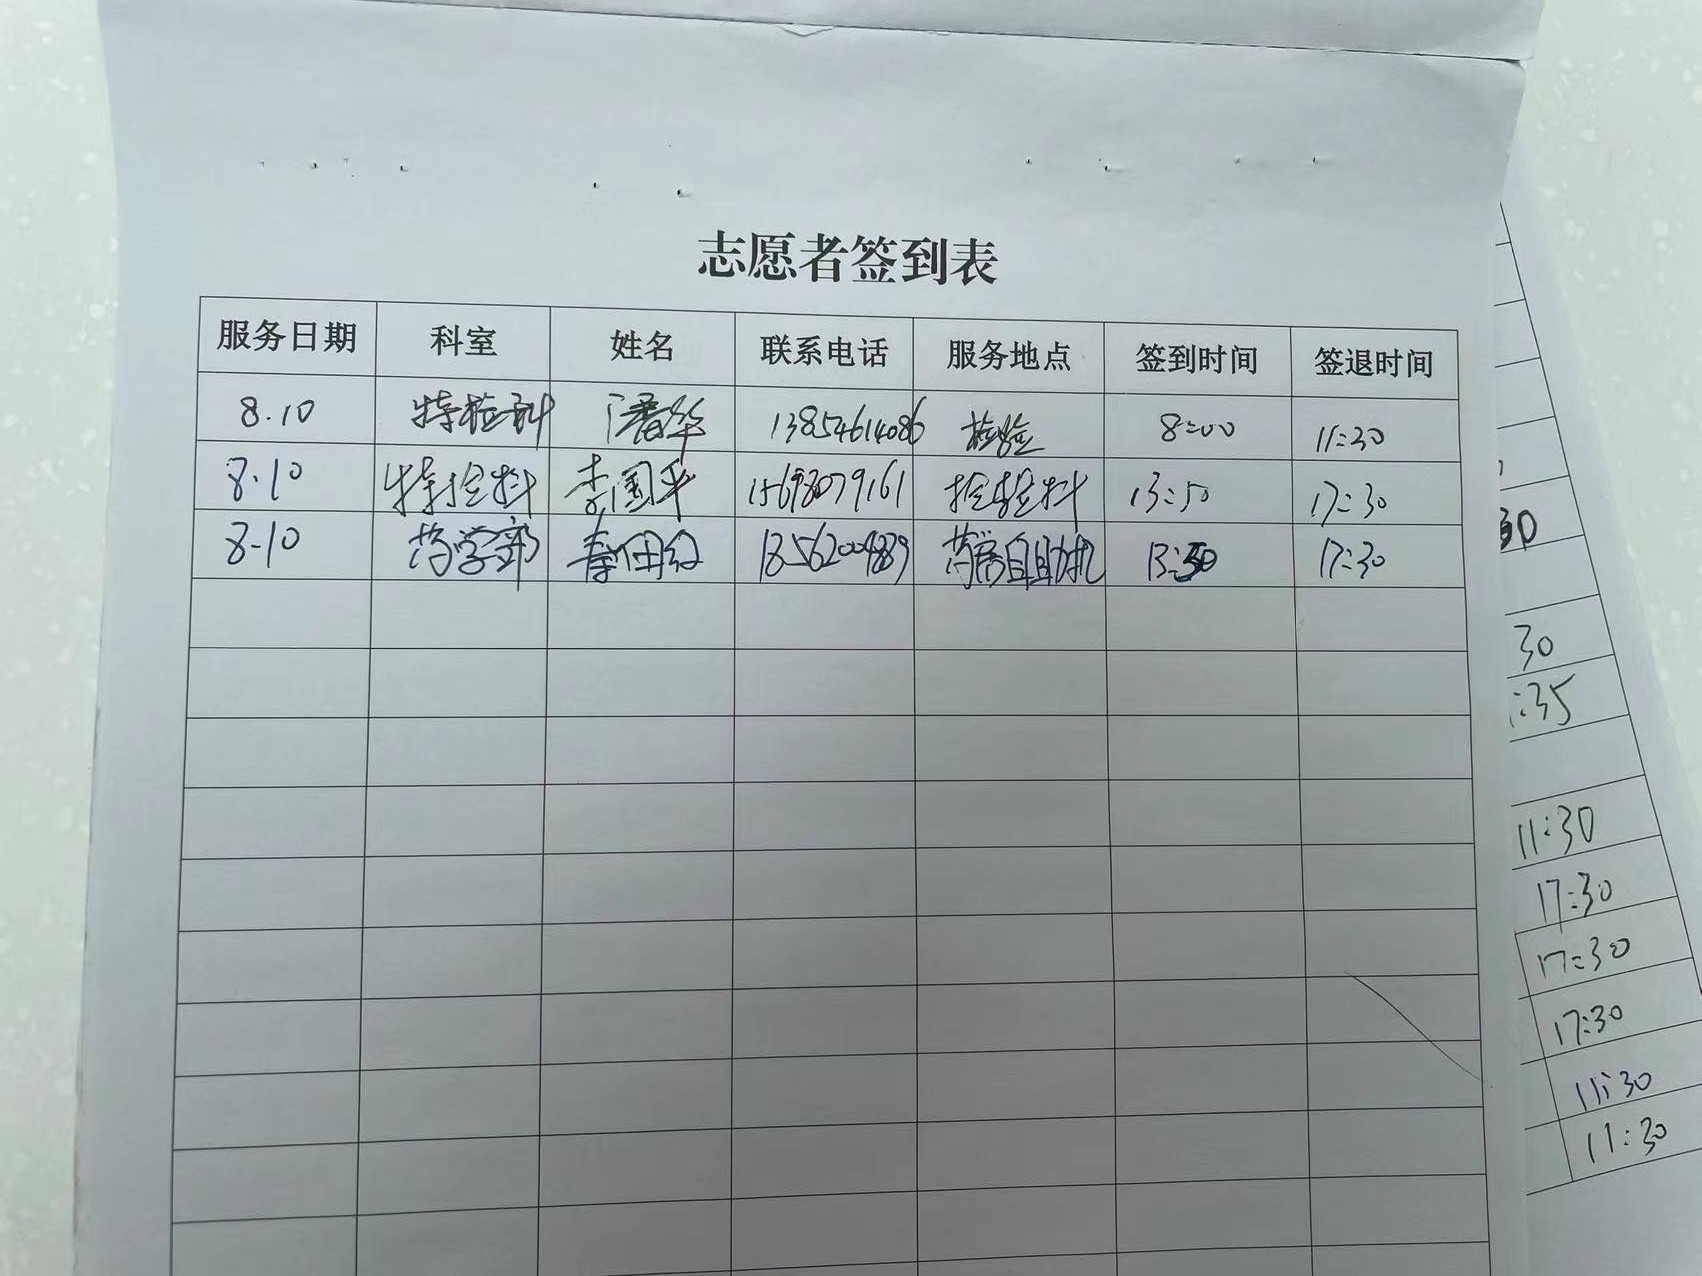 志愿者签到表
服务日期 科室 姓名 联系电话 服务地点 签到时间 签退时间
8.10 特检科 潘华 13854614086 检验 8:00 11:30
8.10 特检科 李国平 15698079161 检验科 13:50 17:30
8-10 药学部 田红 18562004889 药房自助机 13:30 17:30
30
30
:35
11:30
17:30
17:30
17:30
11:30
11:30